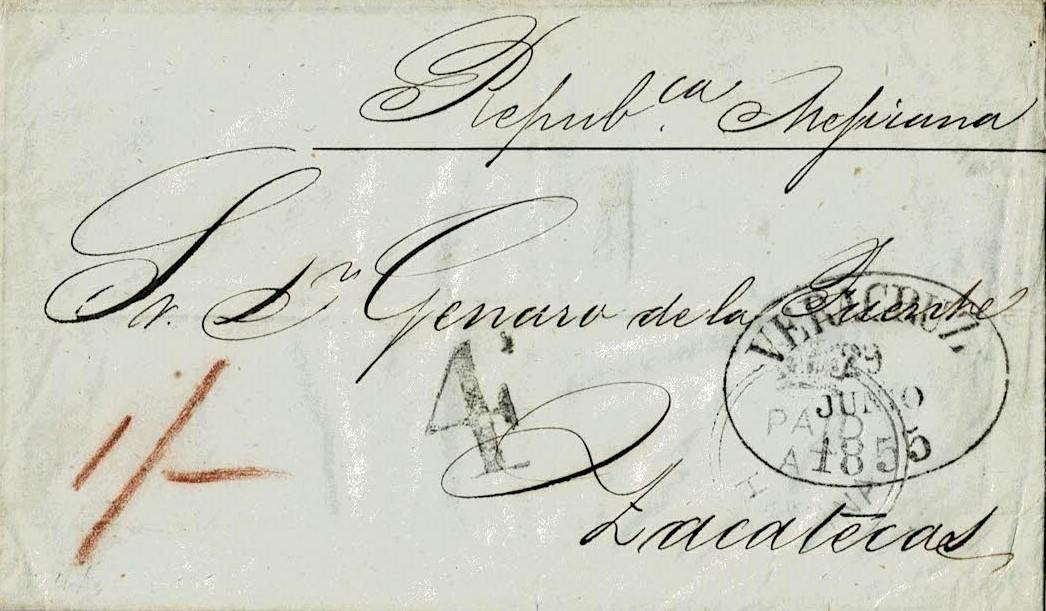 Repub.ca Mejicana
Sr. Dn Genaro de la Fuente
1/-
4
VERACRUZ
29
JUNIO
1855
PAID
A
Zacatecas